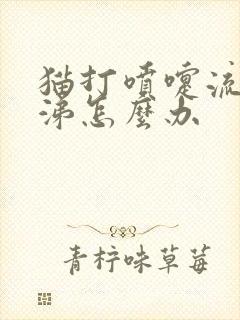 猫打喷嚏流
涕怎麼办
青柠味草莓